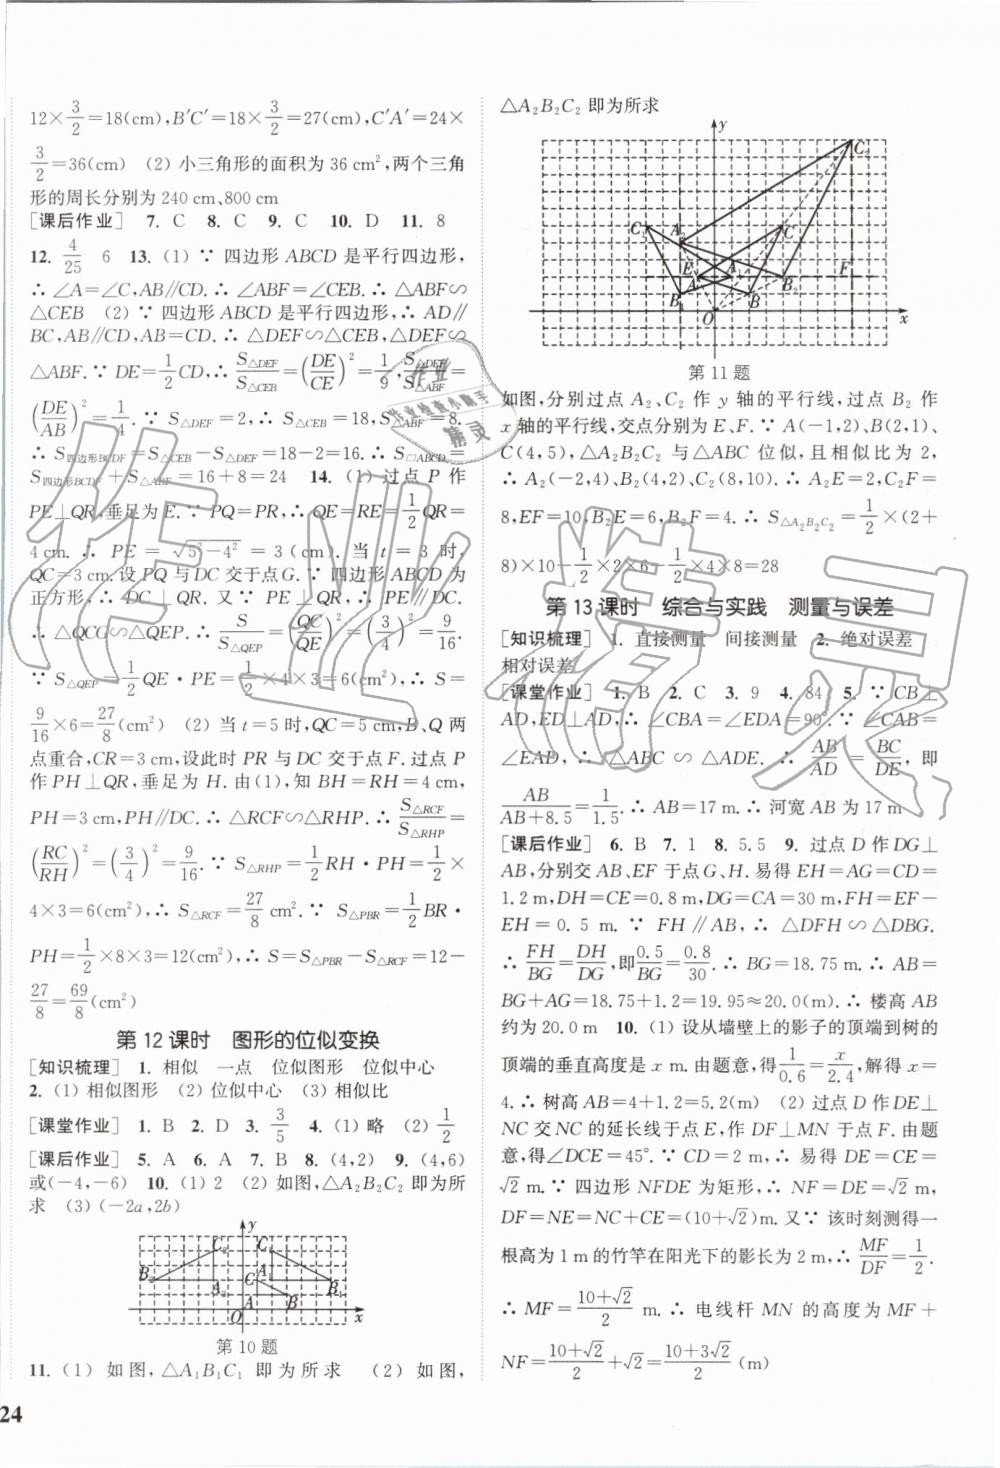 12×3/2=18(cm),B′C′=18×3/2=27(cm),C′A′=24×
3/2=36(cm) (2) 小三角形的面积为 36 cm²,两个三角
形的周长分别为 240 cm、800 cm
[课后作业] 7. C 8. C 9. C 10. D 11. 8
12. 4/25 6 13. (1) ∵ 四边形 ABCD 是平行四边形,
∴ ∠A=∠C,AB∥CD. ∴ ∠ABF=∠CEB. ∴ △ABF∽
△CEB (2) ∵ 四边形 ABCD 是平行四边形,∴ AD∥
BC,AB∥CD,AB=CD. ∴ △DEF∽△CEB,△DEF∽
△ABF. ∵ DE=1/2CD,∴ S△DEF/S△CEB=(DE/CE)²=1/9,S△DEF/S△ABF=
(DE/AB)²=1/4. ∵ S△DEF=2,∴ S△CEB=18,S△ABF=8.
∴ S四边形BCDF=S△CEB−S△DEF=18−2=16. ∴ S□ABCD=
S四边形BCDF+S△ABF=16+8=24 14. (1) 过点 P 作
PE⊥QR,垂足为 E. ∵ PQ=PR,∴ QE=RE=1/2QR=
4 cm. ∴ PE=√5²−4²=3(cm). 当 t=3 时,
QC=3 cm. 设 PQ 与 DC 交于点 G. ∵ 四边形 ABCD 为
正方形,∴ DC⊥QR. 又∵ PE⊥QR,∴ PE∥DC.
∴ △QCG∽△QEP. ∴ S/S△QEP=(QC/QE)²=(3/4)²=9/16.
∵ S△QEP=1/2QE·PE=1/2×4×3=6(cm²),∴ S=
9/16×6=27/8(cm²) (2) 当 t=5 时,QC=5 cm,B、Q 两
点重合,CR=3 cm,设此时 PR 与 DC 交于点 F. 过点 P
作 PH⊥QR,垂足为 H. 由(1),知 BH=RH=4 cm,
PH=3 cm,PH∥DC. ∴ △RCF∽△RHP. ∴ S△RCF/S△RHP=
(RC/RH)²=(3/4)²=9/16. ∵ S△RHP=1/2RH·PH=1/2×
4×3=6(cm²),∴ S△RCF=27/8 cm². ∵ S△PBR=1/2BR·
PH=1/2×8×3=12(cm²),∴ S=S△PBR−S△RCF=12−
27/8=69/8(cm²)
第 12 课时 图形的位似变换
[知识梳理] 1. 相似 一点 位似图形 位似中心
2. (1) 相似图形 (2) 位似中心 (3) 相似比
[课堂作业] 1. B 2. D 3. 3/5 4. (1) 略 (2) 1/2
[课后作业] 5. A 6. A 7. B 8. (4,2) 9. (4,6)
或(−4,−6) 10. (1) 2 (2) 如图,△A₂B₂C₂ 即为所
求 (3) (−2a,2b)
y
C₂ C₁
B₂ A₂ C A₁ B₁
A B
O x
第 10 题
11. (1) 如图,△A₁B₁C₁ 即为所求 (2) 如图,
24
△A₂B₂C₂ 即为所求
y
C₂
C₁ A₂ C
E A₁ B₂ F
B₁ A B
O x
第 11 题
如图,分别过点 A₂、C₂ 作 y 轴的平行线,过点 B₂ 作
x 轴的平行线,交点分别为 E、F. ∵ A(−1,2),B(2,1),
C(4,5),△A₂B₂C₂ 与△ABC 位似,且相似比为 2,
∴ A₂(−2,4),B₂(4,2),C₂(8,10). ∴ A₂E=2,C₂F=
8,EF=10,B₂E=6,B₂F=4. ∴ S△A₂B₂C₂=1/2×(2+
8)×10−1/2×2×6−1/2×4×8=28
第 13 课时 综合与实践 测量与误差
[知识梳理] 1. 直接测量 间接测量 2. 绝对误差
相对误差
[课堂作业] 1. B 2. C 3. 9 4. 84 5. ∵ CB⊥
AD,ED⊥AD,∴ ∠CBA=∠EDA=90°. ∵ ∠CAB=
∠EAD,∴ △ABC∽△ADE. ∴ AB/AD=BC/DE,即
AB/AB+8.5=1/1.5. ∴ AB=17 m. ∴ 河宽 AB 为 17 m
[课后作业] 6. B 7. 1 8. 5.5 9. 过点 D 作 DG⊥
AB,分别交 AB、EF 于点 G、H. 易得 EH=AG=CD=
1.2 m,DH=CE=0.8 m,DG=CA=30 m,FH=EF−
EH=0.5 m. ∵ FH∥AB,∴ △DFH∽△DBG.
∴ FH/BG=DH/DG,即0.5/BG=0.8/30. ∴ BG=18.75 m. ∴ AB=
BG+AG=18.75+1.2=19.95≈20.0(m). ∴ 楼高 AB
约为 20.0 m 10. (1) 设从墙壁上的影子的顶端到树的
顶端的垂直高度是 x m. 由题意,得1/0.6=x/2.4,解得 x=
4. ∴ 树高 AB=4+1.2=5.2(m) (2) 过点 D 作 DE⊥
NC 交 NC 的延长线于点 E,作 DF⊥MN 于点 F. 由题
意,得∠DCE=45°. ∵ CD=2 m,∴ 易得 DE=CE=
√2 m. ∵ 四边形 NFDE 为矩形,∴ NF=DE=√2 m,
DF=NE=NC+CE=(10+√2)m. 又∵ 该时刻测得一
根高为 1 m 的竹竿在阳光下的影长为 2 m,∴ MF/DF=1/2.
∴ MF=10+√2/2 m. ∴ 电线杆 MN 的高度为 MF+
NF=10+√2/2+√2=10+3√2/2(m)
作业精灵
作业
作业检查小助手
精灵